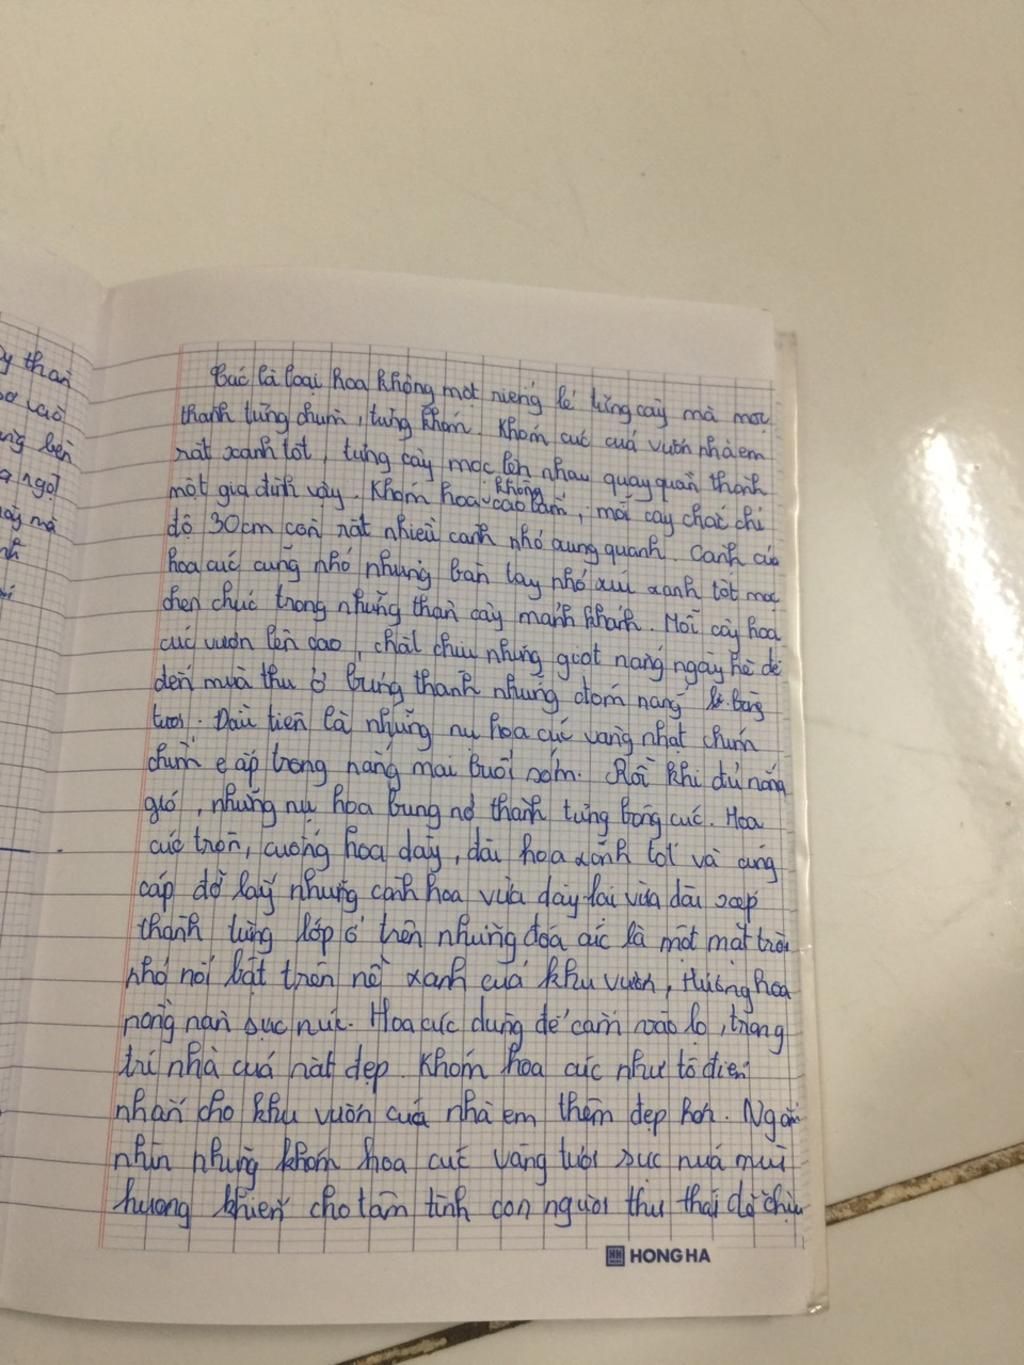 y than
vào
bên
ngọt
này mà
nh
Cúc là loại hoa không mọt riêng lẻ từng cây mà mọc
thành từng chùm, từng khóm. Khóm cúc của vườn nhà em
rất xanh tốt, từng cây mọc lên nhau quây quần thành
một gia đình vậy. Khóm hoa không cao lắm, mỗi cây chắc chỉ
độ 30cm còn rất nhiều cành nhỏ xung quanh. Cành của
hoa cúc cũng nhỏ nhưng bàn tay nhỏ xíu xanh tốt mọc
chen chúc trong những thân cây mảnh khảnh. Mỗi cây hoa
cúc vươn lên cao, chắt chiu những giọt nắng ngày hè để
đến mùa thu ở bừng thành những đốm nắng bông
tươi. Đầu tiên là những nụ hoa cúc vàng nhạt chúm
chím e ấp trong nắng mai buổi sớm. Rồi khi đủ nắng
gió, những nụ hoa bung nở thành từng bông cúc. Hoa
cúc tròn, cuống hoa dày, đài hoa xanh tốt và cứng
cáp đỡ lấy những cánh hoa vừa dày lại vừa dài xếp
thành từng lớp ở trên những đóa cúc là một mặt trời
nhỏ nổi bật trên nề xanh của khu vườn, Hương hoa
nồng nàn sực nức. Hoa cúc dùng để cắm vào lọ, trang
trí nhà cuả rất đẹp. Khóm hoa cúc như tô điểm
nhấn cho khu vườn của nhà em thêm đẹp hơn. Ngắm
nhìn những khóm hoa cúc vàng tươi sực nuá mùi
hương khiến cho tâm tình con người thư thái dễ chịu
HONG HA